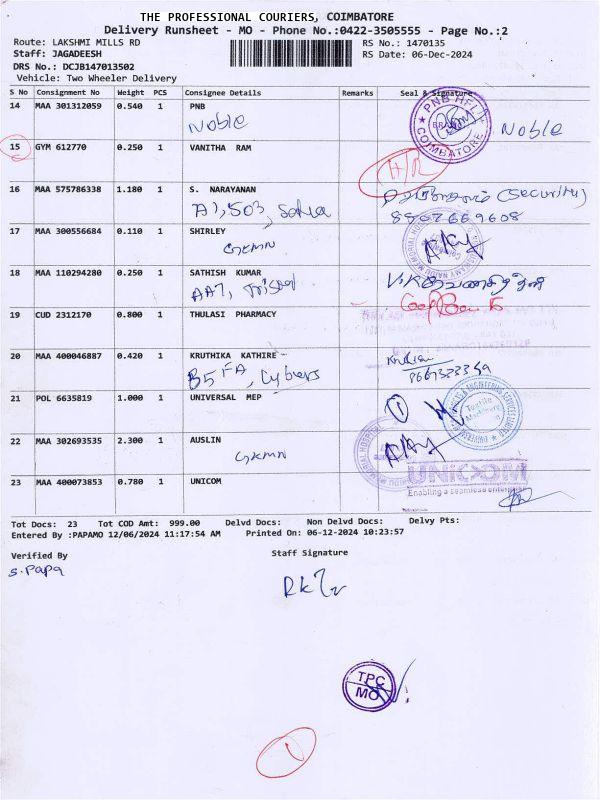 THE PROFESSIONAL COURIERS, COIMBATORE
Delivery Runsheet - MO - Phone No.:0422-3505555 - Page No.:2
Route: LAKSHMI MILLS RD
RS No.: 1470135
Staff: JAGADEESH
RS Date: 06-Dec-2024
DRS No.: DCJB147013502
Vehicle: Two Wheeler Delivery
S No Consignment No Weight PCS Consignee Details Remarks Seal & Signature
14 MAA 301312059 0.540 1 PNB
Noble Noble
PNB HFL
COIMBATORE
15 GYM 612770 0.250 1 VANITHA RAM
16 MAA 575786338 1.180 1 S. NARAYANAN
A1,503, (Security)
8807669608
17 MAA 300556684 0.110 1 SHIRLEY
GKMN
18 MAA 110294280 0.250 1 SATHISH KUMAR
AA7,
19 CUD 2312170 0.800 1 THULASI PHARMACY
20 MAA 400046887 0.420 1 KRUTHIKA KATHIRE
B5 FA,
21 POL 6635819 1.000 1 UNIVERSAL MEP
22 MAA 302693535 2.300 1 AUSLIN
GKMN
23 MAA 400073853 0.780 1 UNICOM
UNICOM
Enabling a seamless
Tot Docs: 23 Tot COD Amt: 999.00 Delvd Docs: Non Delvd Docs: Delvy Pts:
Entered By :PAPAMO 12/06/2024 11:17:54 AM Printed On: 06-12-2024 10:23:57
Verified By
Staff Signature
S. Papa
TPC
MO
1